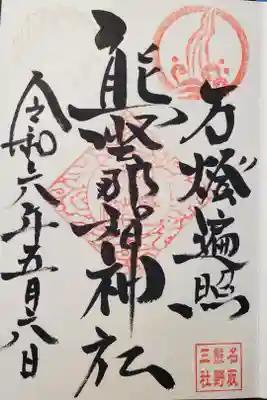 万燈遍照
熊野那智神社
令和六年五月六日
名取
熊野
三社